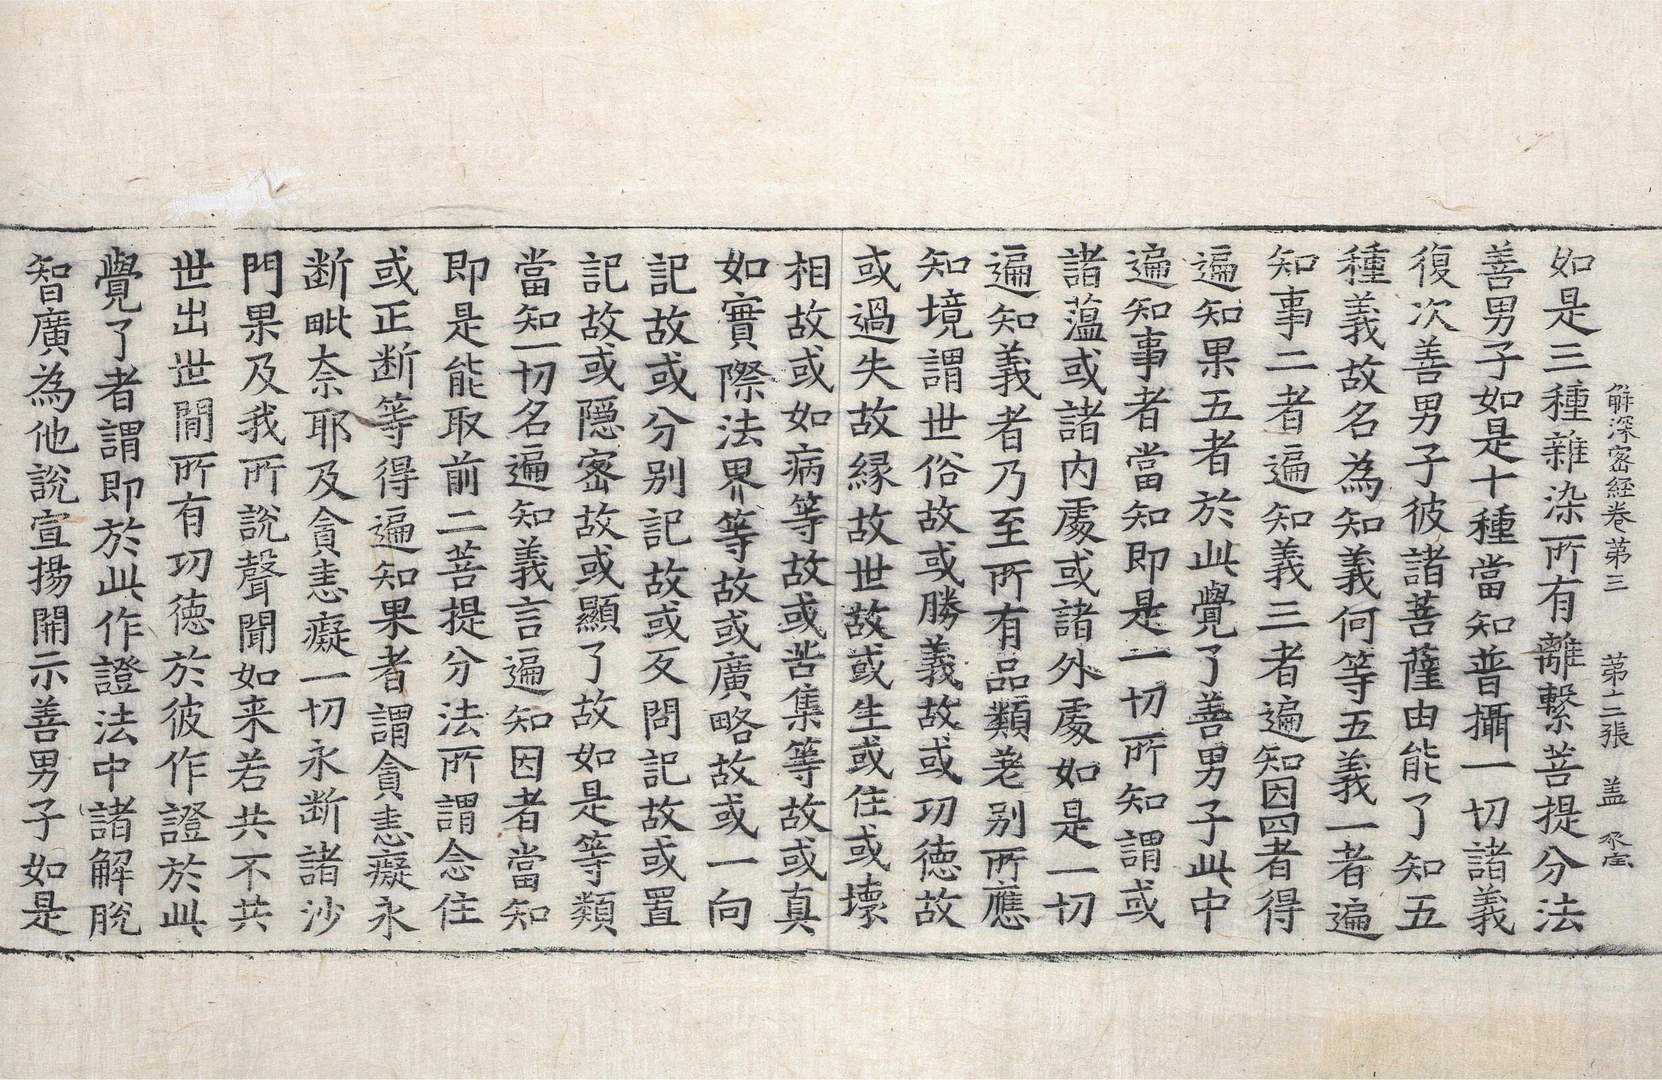 解深密經卷第三 第十二張 盖
如是三種雜染所有離繫菩提分法
善男子如是十種當知普攝一切諸義
復次善男子彼諸菩薩由能了知五
種義故名為知義何等五義一者遍
知事二者遍知義三者遍知因四者得
遍知果五者於此覺了善男子此中
遍知事者當知即是一切所知謂或
諸薀或諸內處或諸外處如是一切
遍知義者乃至所有品類差別所應
知境謂世俗故或勝義故或功德故
或過失故緣故世故或生或住或壞
相故或如病等故或苦集等故或真
如實際法界等故或廣略故或一向
記故或分別記故或反問記故或置
記故或隱密故或顯了故如是等類
當知一切名遍知義言遍知因者當知
即是能取前二菩提分法所謂念住
或正断等得遍知果者謂貪恚癡永
断毗奈耶及貪恚癡一切永断諸沙
門果及我所說聲聞如来若共不共
世出世間所有功德於彼作證於此
覺了者謂即於此作證法中諸解脫
智廣為他說宣揚開示善男子如是